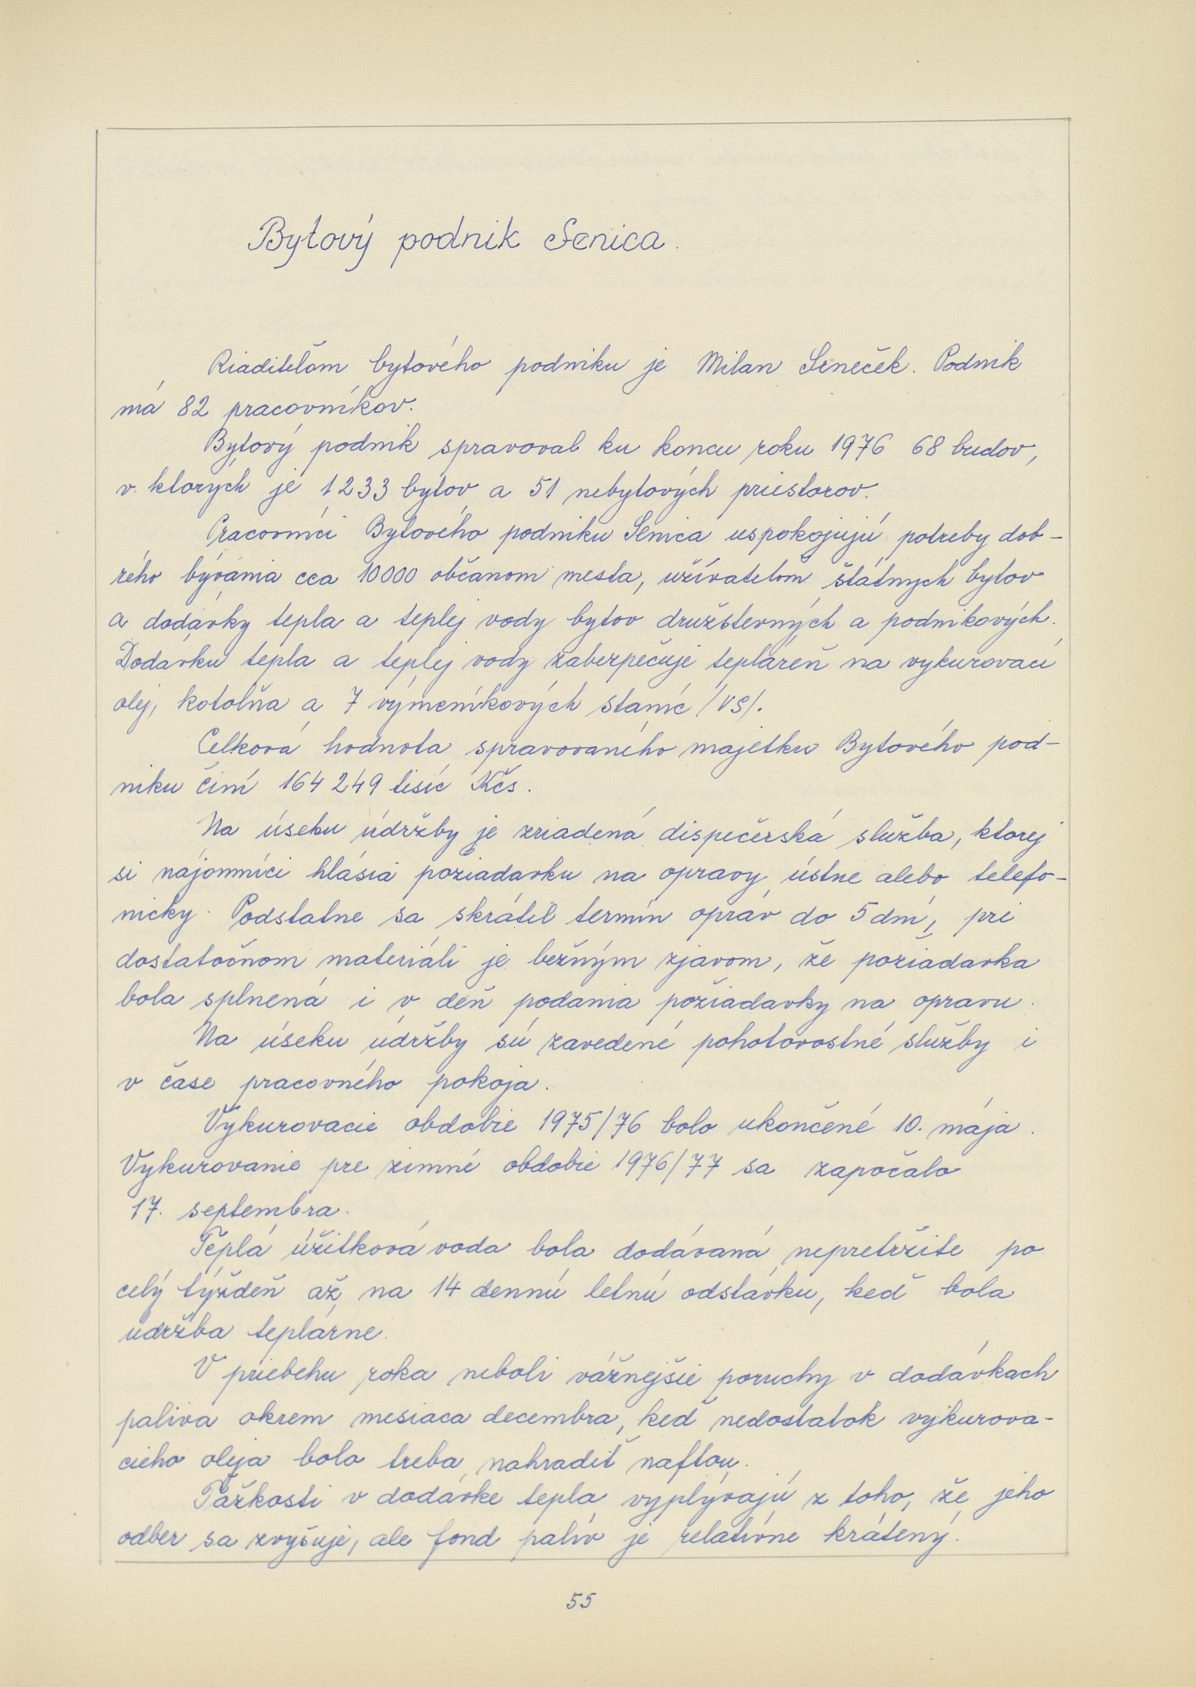 Bytový podnik Senica.
Riaditeľom bytového podniku je Milan Seneček. Podnik
má 82 pracovníkov.
Bytový podnik spravoval ku koncu roku 1976 68 budov,
v ktorých je 1233 bytov a 51 nebytových priestorov.
Pracovníci Bytového podniku Senica uspokojujú potreby dob-
rého bývania cca 10000 občanom mesta, užívateľom štátnych bytov
a dodávky tepla a teplej vody bytov družstevných a podnikových.
Dodávku tepla a teplej vody zabezpečuje tepláreň na vykurovací
olej, kotolňa a 7 výmeníkových staníc /VS/.
Celková hodnota spravovaného majetku Bytového pod-
niku činí 164 249 tisíc Kčs.
Na úseku údržby je zriadená dispečerská služba, ktorej
si nájomníci hlásia požiadavku na opravy ústne alebo telefo-
nicky. Podstatne sa skrátil termín opráv do 5 dní, pri
dostatočnom materiáli je bežným zjavom, že požiadavka
bola splnená i v deň podania požiadavky na opravu.
Na úseku údržby sú zavedené pohotovostné služby i
v čase pracovného pokoja.
Vykurovacie obdobie 1975/76 bolo ukončené 10. mája.
Vykurovanie pre zimné obdobie 1976/77 sa započalo
17. septembra.
Teplá úžitková voda bola dodávaná nepretržite po
celý týždeň až na 14 dennú letnú odstávku, keď bola
údržba teplárne.
V priebehu roka neboli vážnejšie poruchy v dodávkach
paliva okrem mesiaca decembra, keď nedostatok vykurova-
cieho oleja bolo treba nahradiť naftou.
Ťažkosti v dodávke tepla vyplývajú z toho, že jeho
odber sa zvyšuje, ale fond palív je relatívne krátený.
55